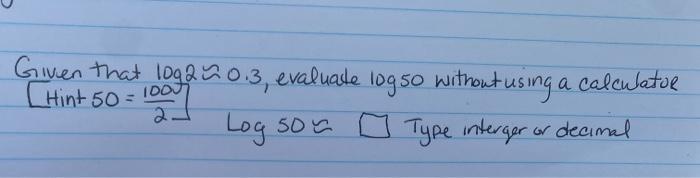 Given that log2 ≈ 0.3, evaluate log50 without using a calculator
[Hint 50 = 100/2]
Log 50 ≈ □ Type interger or decimal